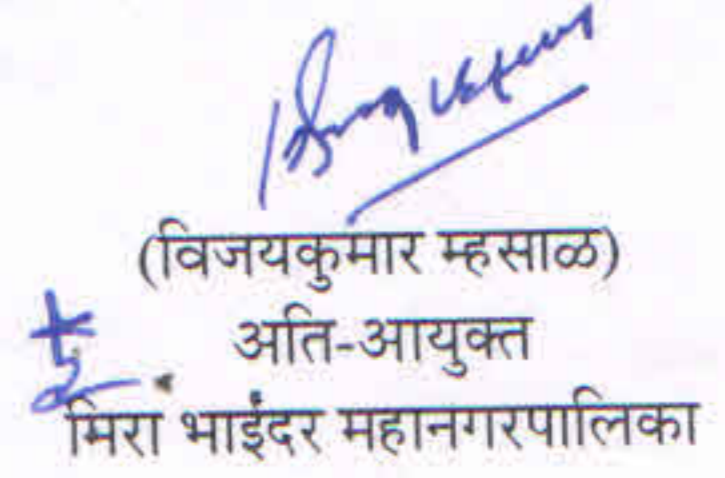 (विजयकुमार म्हसाळ)
अति-आयुक्त
मिरा भाईंदर महानगरपालिका